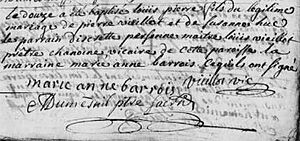 le douze a été baptisé louis pierre fils du légitime
mariage de pierre vieillot et de susanne hue
le parain discrette personne maitre louis vieillot
prêtre chanoine vicaire de cette paroisse la
marraine marie anne barrois lesquels ont signé
marie anne barrois vieillot vic
Dumesnil ptre